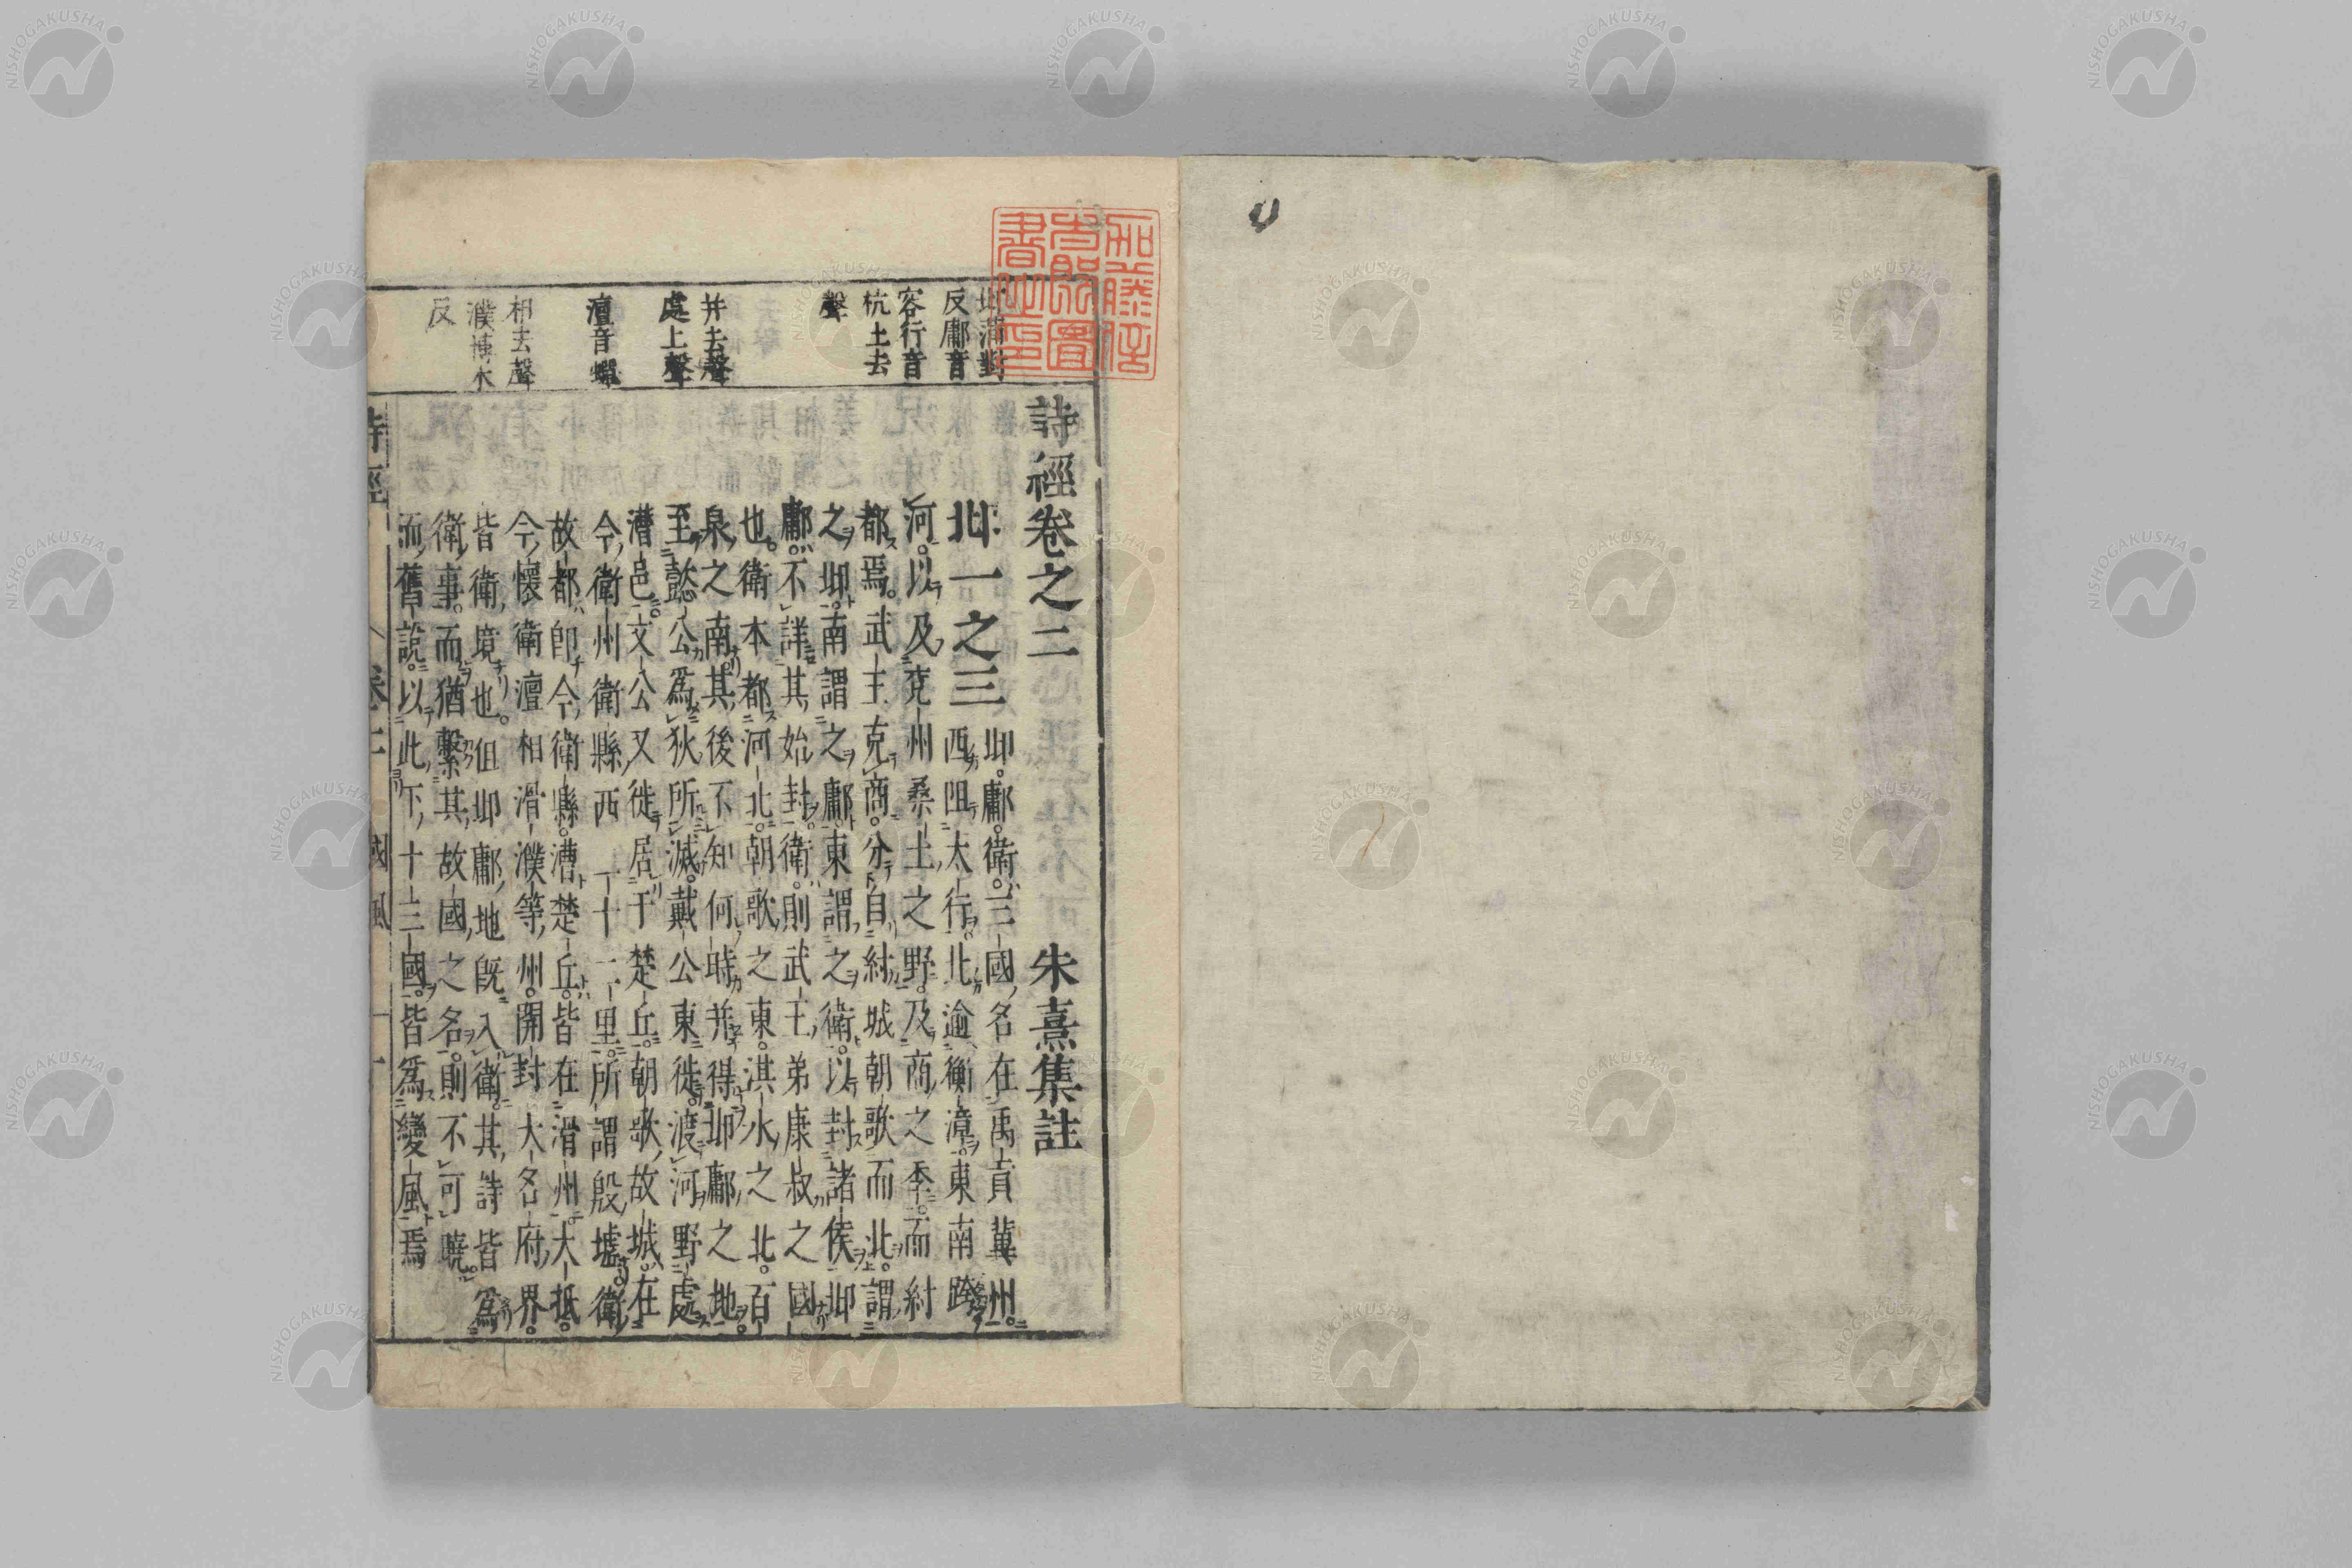 詩經卷之二　朱熹集註
邶一之三
邶鄘衛三國名在禹貢冀州
西阻太行北逾衡漳東南跨
河以及兗州桑土之野及商之季而紂
都焉武王克商分自紂城朝歌而北謂
之邶南謂之鄘東謂之衛以封諸侯邶
鄘不詳其始封衛則武王弟康叔之國
也衛本都河北朝歌之東淇水之北百
泉之南其後不知何時并得邶鄘之地
至懿公爲狄所滅戴公東徙渡河野處
漕邑文公又徙居于楚丘朝歌故城在
今衛州衛縣西二十二里所謂殷墟衛
故都即今衛縣漕楚丘皆在滑州大抵
今懷衛澶相滑濮等州開封大名府界
皆衛境也但邶鄘地旣入衛其詩皆爲
衛事而猶繫其故國之名則不可曉
而舊說以此下十三國皆爲變風焉
反鄘音
容行音
杭土去
聲
并去聲
處上聲
澶音蟬
相去聲
濮博木
反
詩經　卷二　國風　一
加藤信
吉氏圖
書之印
NISHOGAKUSHA